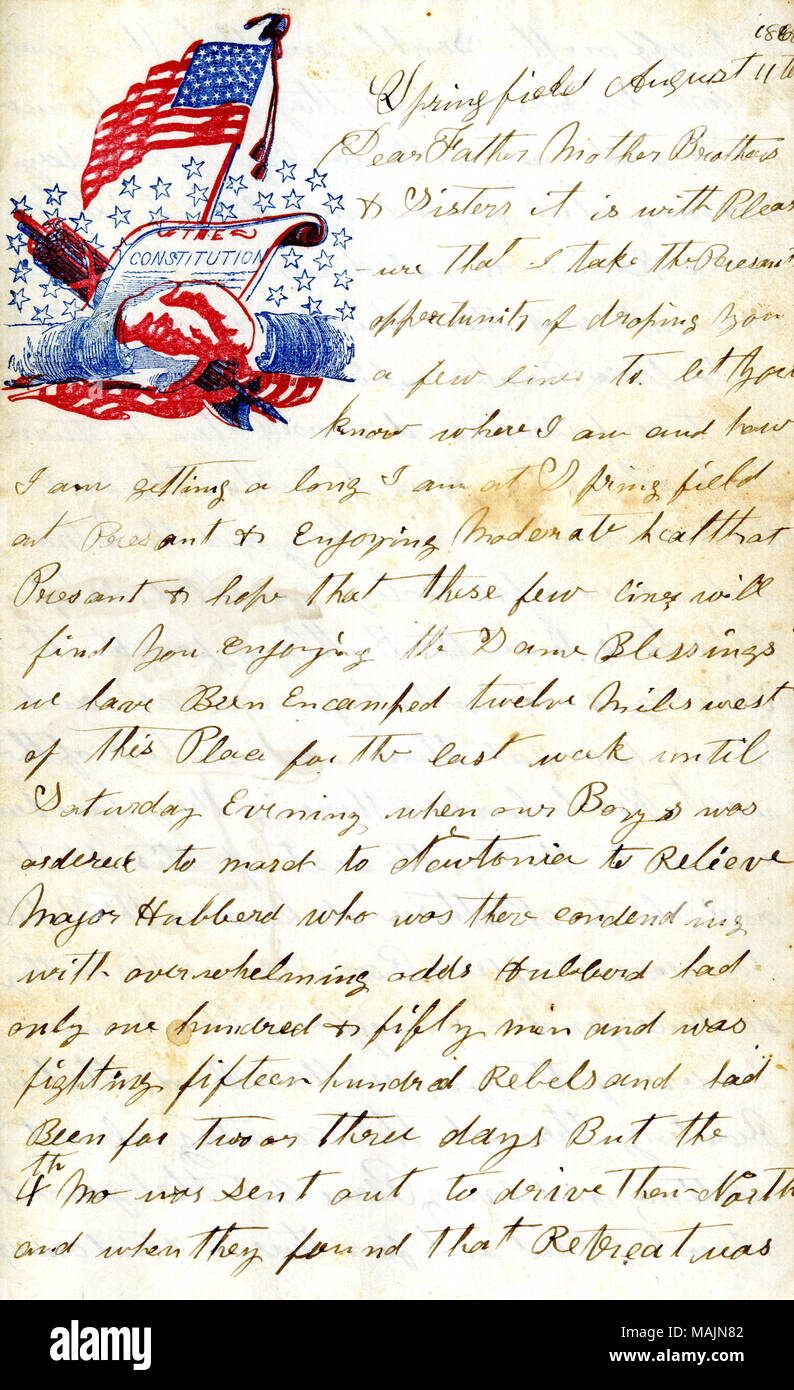 THE
CONSTITUTION
Springfield August 11th
Dear Father Mother Brothers
& Sisters it is with Pleas
-ure that I take the Presant
opportunity of droping you
a few lines to let you
know where I am and how
I am getting a long I am at Springfield
at Presant & Enjoying Moderate health at
Presant & hope that these few lines will
find you Enjoying the Same Blessings
we have Been Encamped twelve Miles west
of this Place for the last week until
Saturday Evening when our Boys was
ordered to march to Newtonia to Relieve
Major Hubberd who was there condending
with overwhelming odds Hubberd had
only one hundred & fifty men and was
fighting fifteen hundred Rebels and had
Been for two or three days But the
4th Mo was sent out to drive them North
and when they found that Retreat was
alamy
Image ID: MAJN82
www.alamy.com